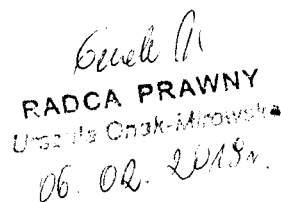 RADCA PRAWNY
Urszula Onak-Mirowska
06. 02. 2019 r.